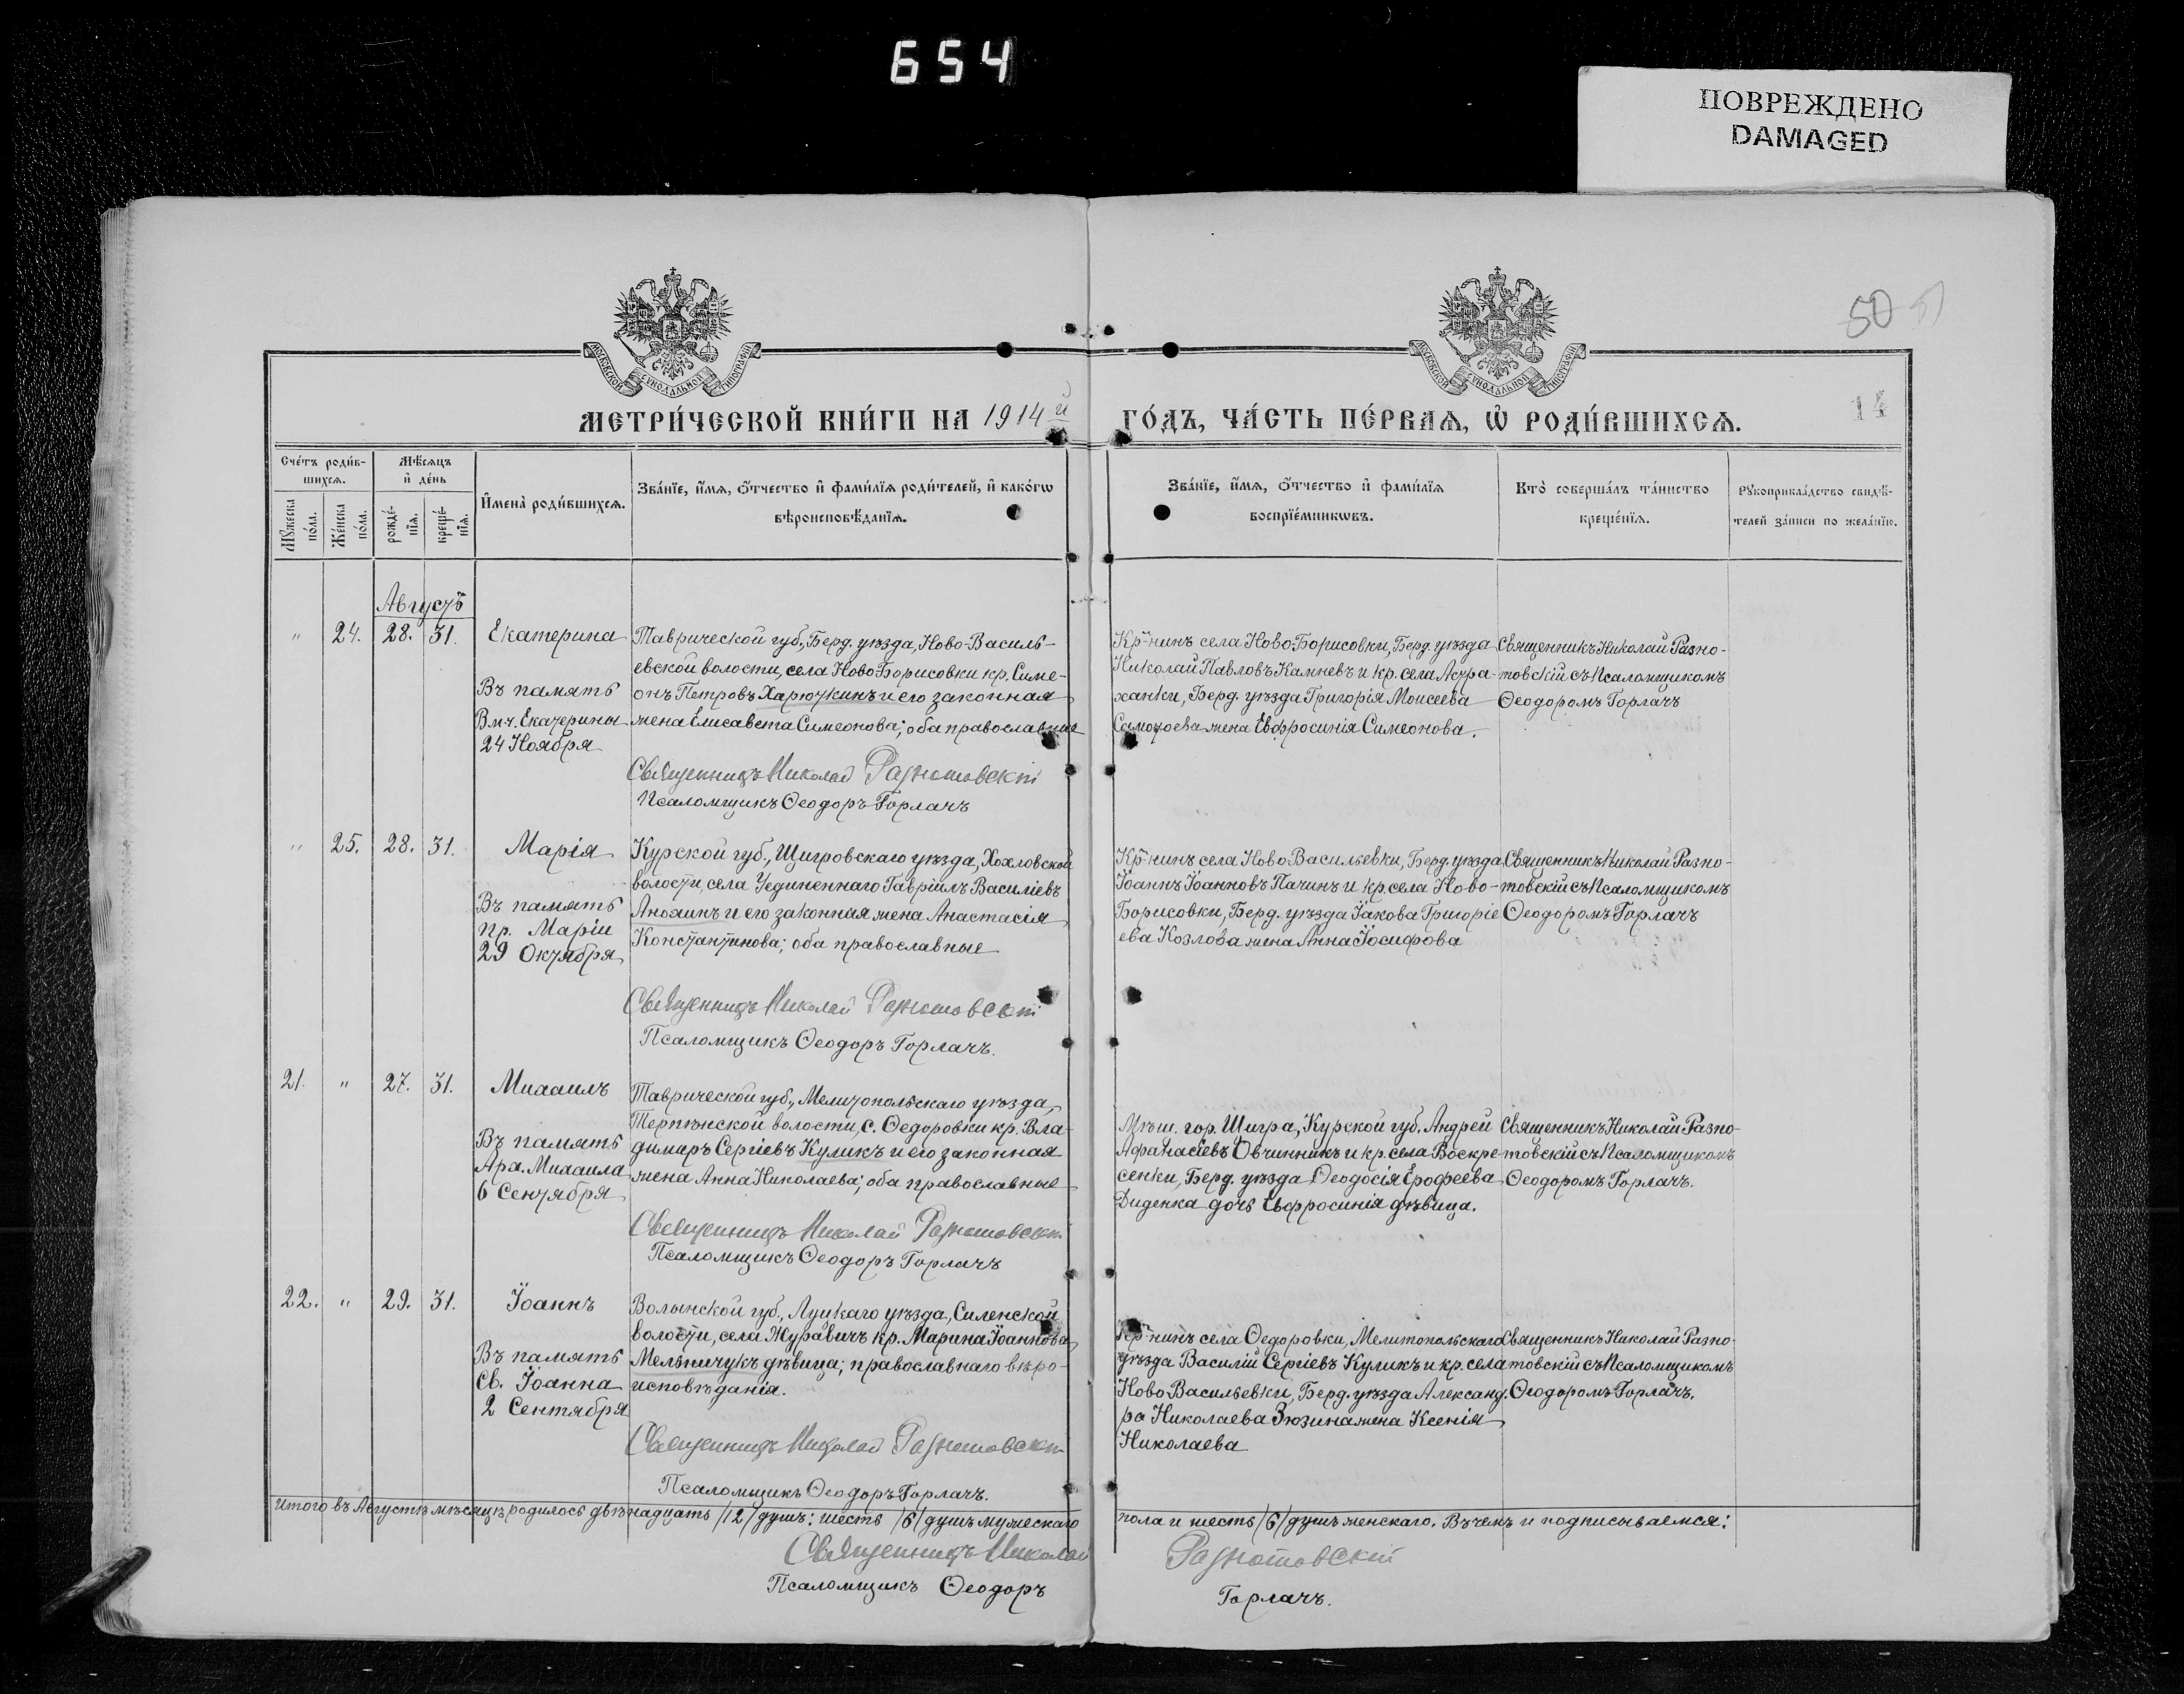 654
ПОВРЕЖДЕНО
DAMAGED
50
МОСКОВСКОЙ СѴНОДАЛЬНОЙ ТИПОГРАФІИ
МОСКОВСКОЙ СѴНОДАЛЬНОЙ ТИПОГРАФІИ
МЕТРИ́ЧЕСКОЙ КНИ́ГИ НА 1914й
ГО́ДЪ, ЧА́СТЬ ПЕ́РВАѦ, Ѡ҆ РОДИ́ВШИХСѦ.
14
Сче́тъ роди́в-
шихсѧ.
Мꙋ́жеска
по́ла.
Же́нска
по́ла.
Мѣ́сѧцъ
и҆ де́нь
рожде́-
нїѧ.
креще́-
нїѧ.
И҆мена̀ роди́вшихсѧ.
Зва́нїе, и҆́мѧ, ѻ҆́тчество и҆ фами́лїѧ роди́телей, и҆ како́гѡ
вѣроисповѣ́данїѧ.
Зва́нїе, и҆́мѧ, ѻ҆́тчество и҆ фами́лїѧ
воспрїе́мникѡвъ.
Кто̀ соверша́лъ та́инство
креще́нїѧ.
Рꙋкоприкла́дство свидѣ́-
телей за́писи по жела́нїю.
Августъ
" 24. 28. 31. Екатерина
Въ память
Вмч. Екатерины
24 Ноября
Таврической губ., Берд. уѣзда, Ново-Василь-
евской волости, села НовоБорисовки кр. Симе-
онъ Петровъ Харючкинъ и его законная
жена Елисавета Симеонова; оба православные
Священникъ Николай Разнотовскій
Псаломщикъ Ѳеодоръ Горлачъ
Кр-нинъ села НовоБорисовки, Берд. уѣзда
Николай Павловъ Камневъ и кр. села Астра-
ханки, Берд. уѣзда Григорія Моисеева
жена Евфросинія Симеонова.
Священникъ Николай Разно-
товскій съ Псаломщикомъ
Ѳеодоромъ Горлачъ
" 25. 28. 31. Марія
Въ память
пр. Маріи
29 Октября
Курской губ., Щигровскаго уѣзда, Хохловской
волости, села Уединеннаго Гавріилъ Василіевъ
Анохинъ и его законная жена Анастасія
Константинова; оба православные
Священникъ Николай Разнотовскій
Псаломщикъ Ѳеодоръ Горлачъ.
Кр-нинъ села НовоВасильевки, Берд. уѣзда
Іоаннъ Іоанновъ Пачинъ и кр. села Ново-
Борисовки, Берд. уѣзда Іакова Григоріе
ева Козлова жена Анна Іосифова
Священникъ Николай Разно-
товскій съ Псаломщикомъ
Ѳеодоромъ Горлачъ
21. " 27. 31. Михаилъ
Въ память
Арх. Михаила
6 Сентября
Таврической губ., Мелитопольскаго уѣзда,
Терпѣнской волости, с. Ѳедоровки кр. Вла-
димиръ Сергіевъ Куликъ и его законная
жена Анна Николаева; оба православные
Священникъ Николай Разнотовскій
Псаломщикъ Ѳеодоръ Горлачъ
Мѣщ. гор. Щигра, Курской губ. Андрей
Афанасіевъ Овчинникъ и кр. села Воскре-
сенки, Берд. уѣзда Ѳеодосія Ерофеева
Диденка дочь Евфросинія дѣвица.
Священникъ Николай Разно-
товскій съ Псаломщикомъ
Ѳеодоромъ Горлачъ.
22. " 29. 31. Іоаннъ
Въ память
Св. Іоанна
2 Сентября
Волынской губ., Луцкаго уѣзда, Силенской
волости, села Журавичъ кр. Марина Іоаннова
Мельничукъ дѣвица; православнаго вѣро-
исповѣданія.
Священникъ Николай Разнотовскій
Псаломщикъ Ѳеодоръ Горлачъ.
Кр-нинъ села Ѳедоровки, Мелитопольскаго
уѣзда Василій Сергіевъ Куликъ и кр. села
НовоВасильевки, Берд. уѣзда Александ.
ра Николаева Зюзина жена Ксенія
Николаева
Священникъ Николай Разно-
товскій съ Псаломщикомъ
Ѳеодоромъ Горлачъ.
Итого въ Августѣ мѣсяцѣ родилось двѣнадцать /12/ душъ: шесть /6/ душъ мужескаго
пола и шесть /6/ душъ женскаго. Въ чемъ и подписываемся:
Священникъ Николай Разнотовскій
Псаломщикъ Ѳеодоръ Горлачъ.